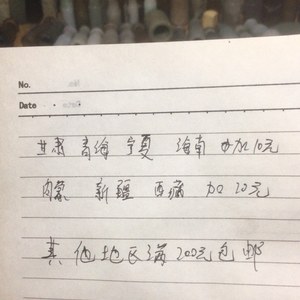 No.
Date
甘肃 青海 宁夏 海南 加10元
内蒙 新疆 西藏 加20元
其他地区满200元包邮